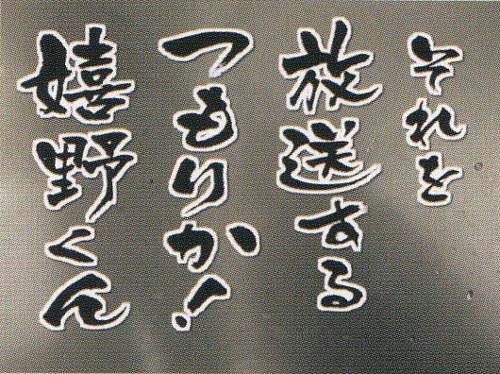 それを
放送する
つもりか!
嬉野くん